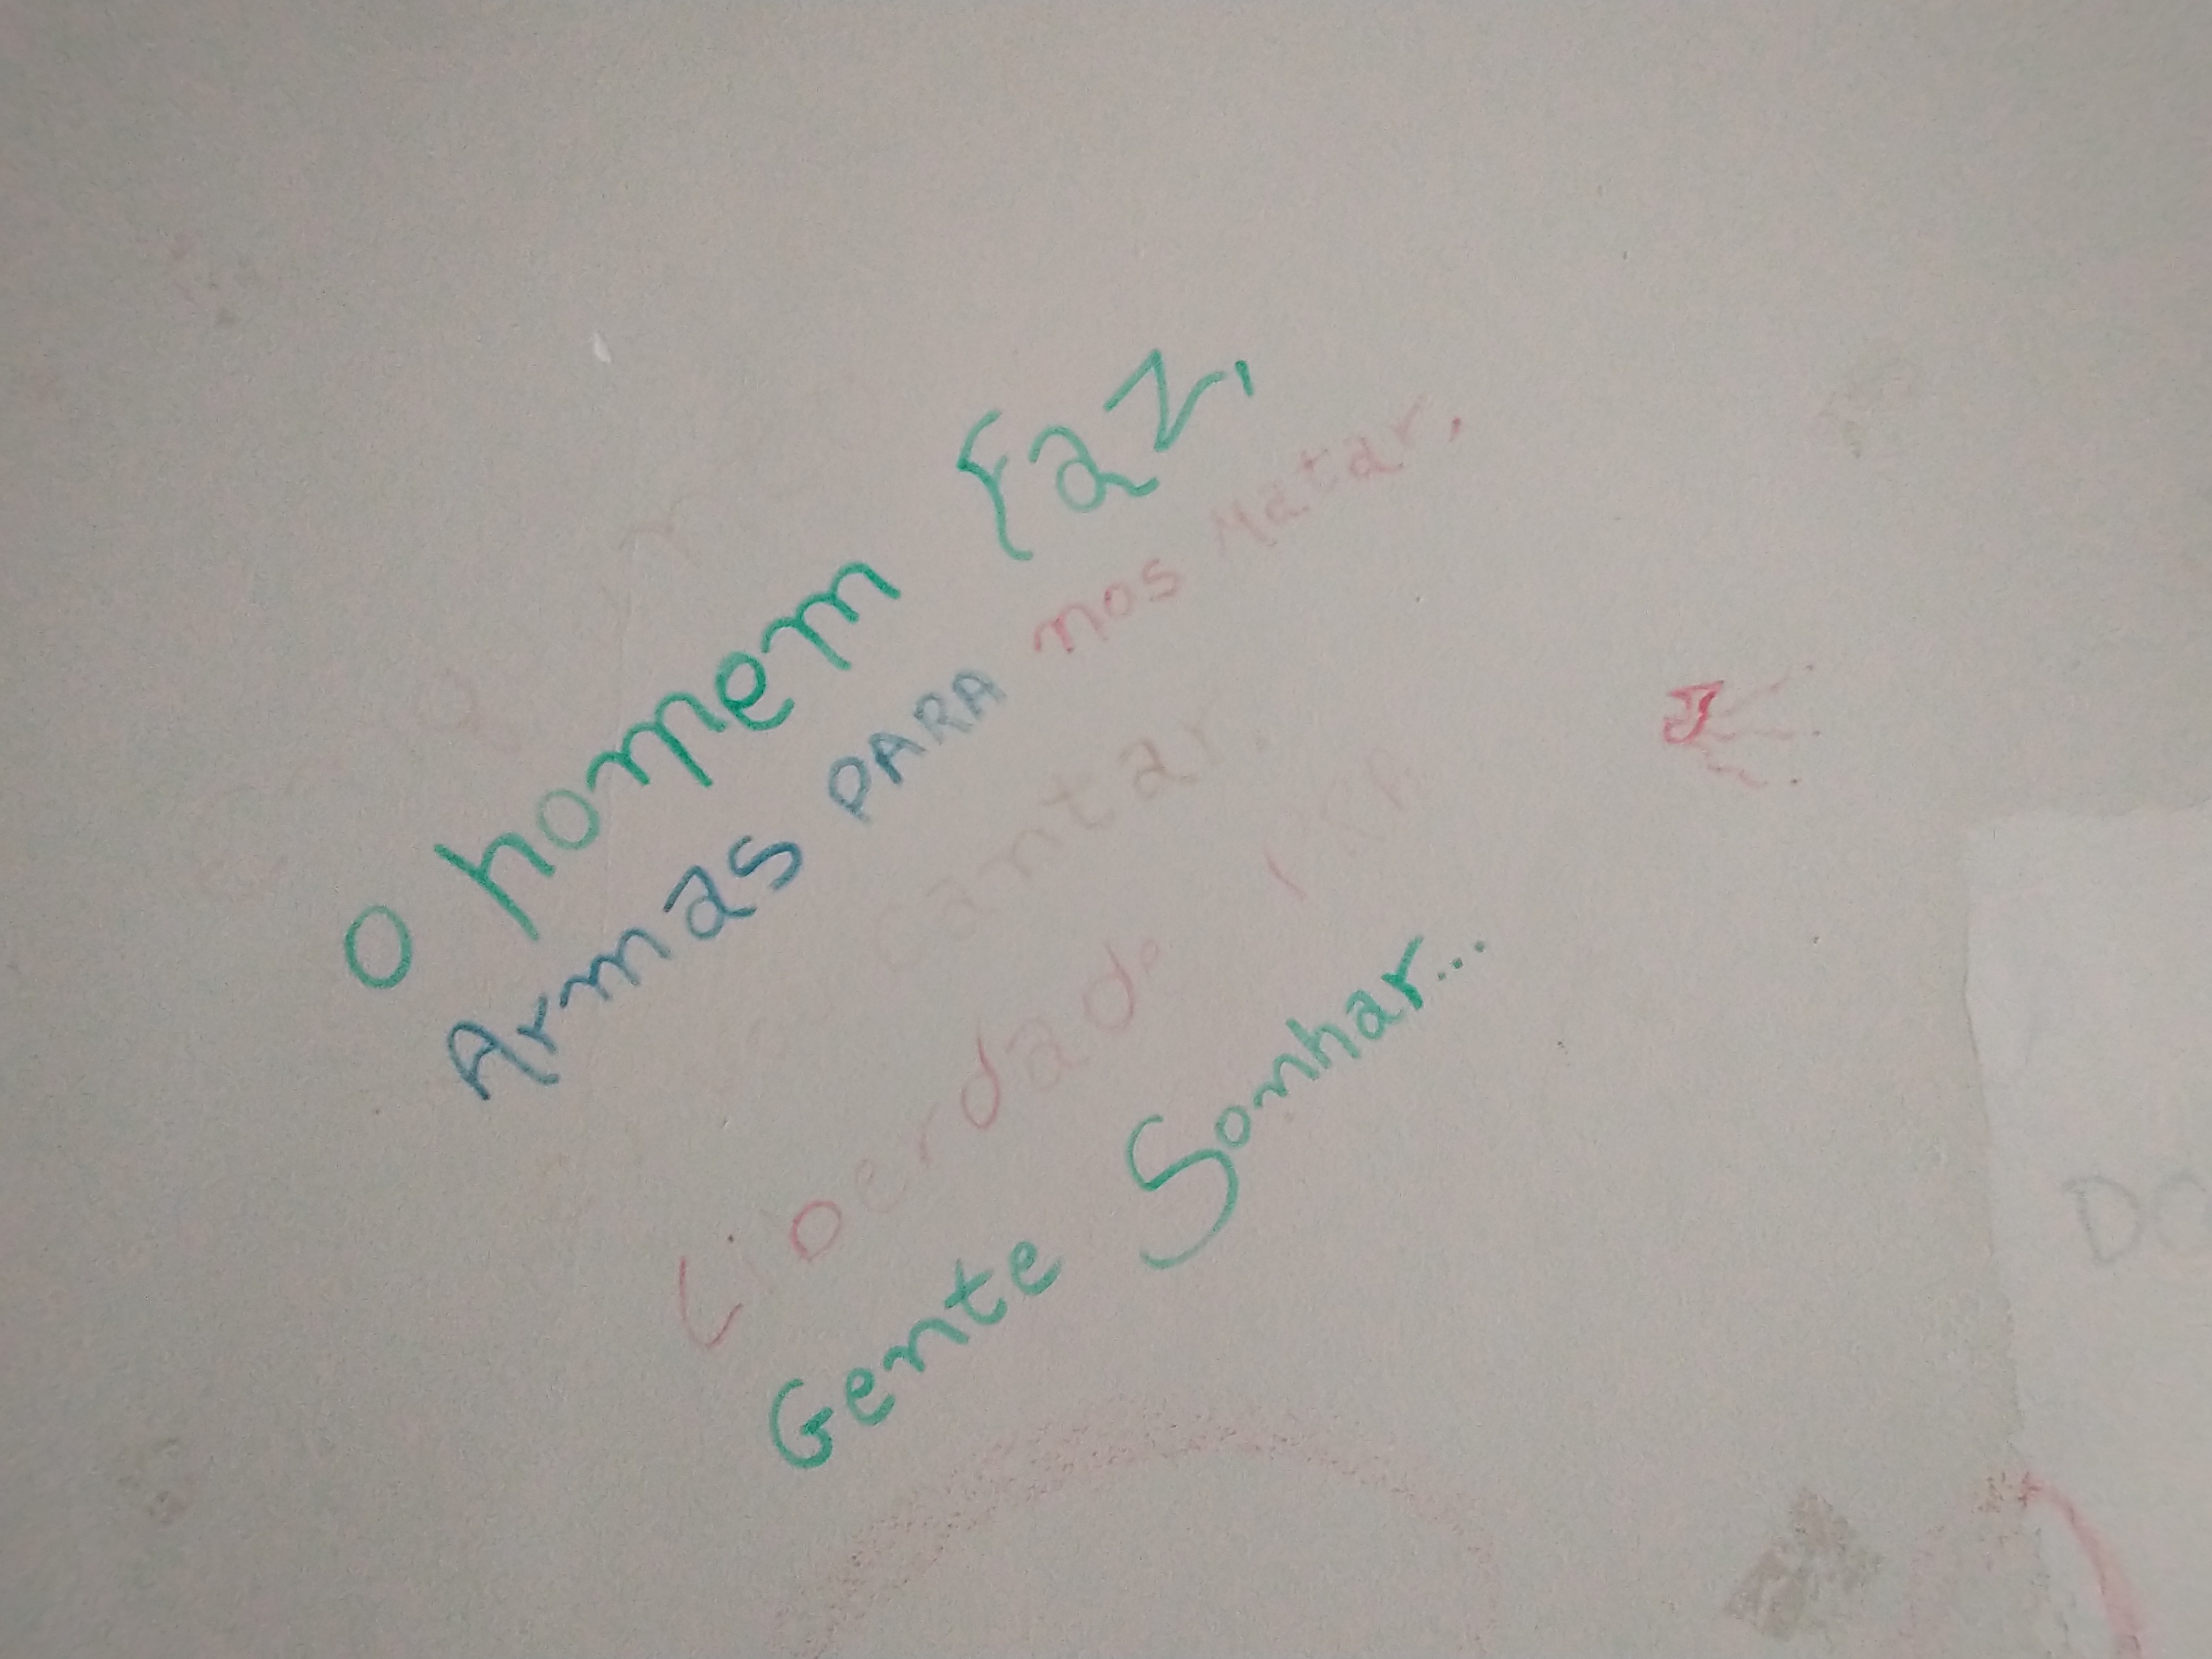 O homem faz,
Armas PARA nos Matar,
cantar.
Liberdade
Gente Sonhar...
DO